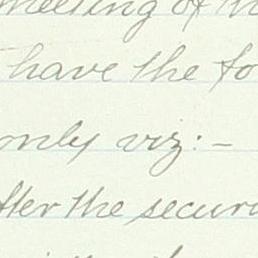 meeting of th
have the fo
only viz:-
fter the securi